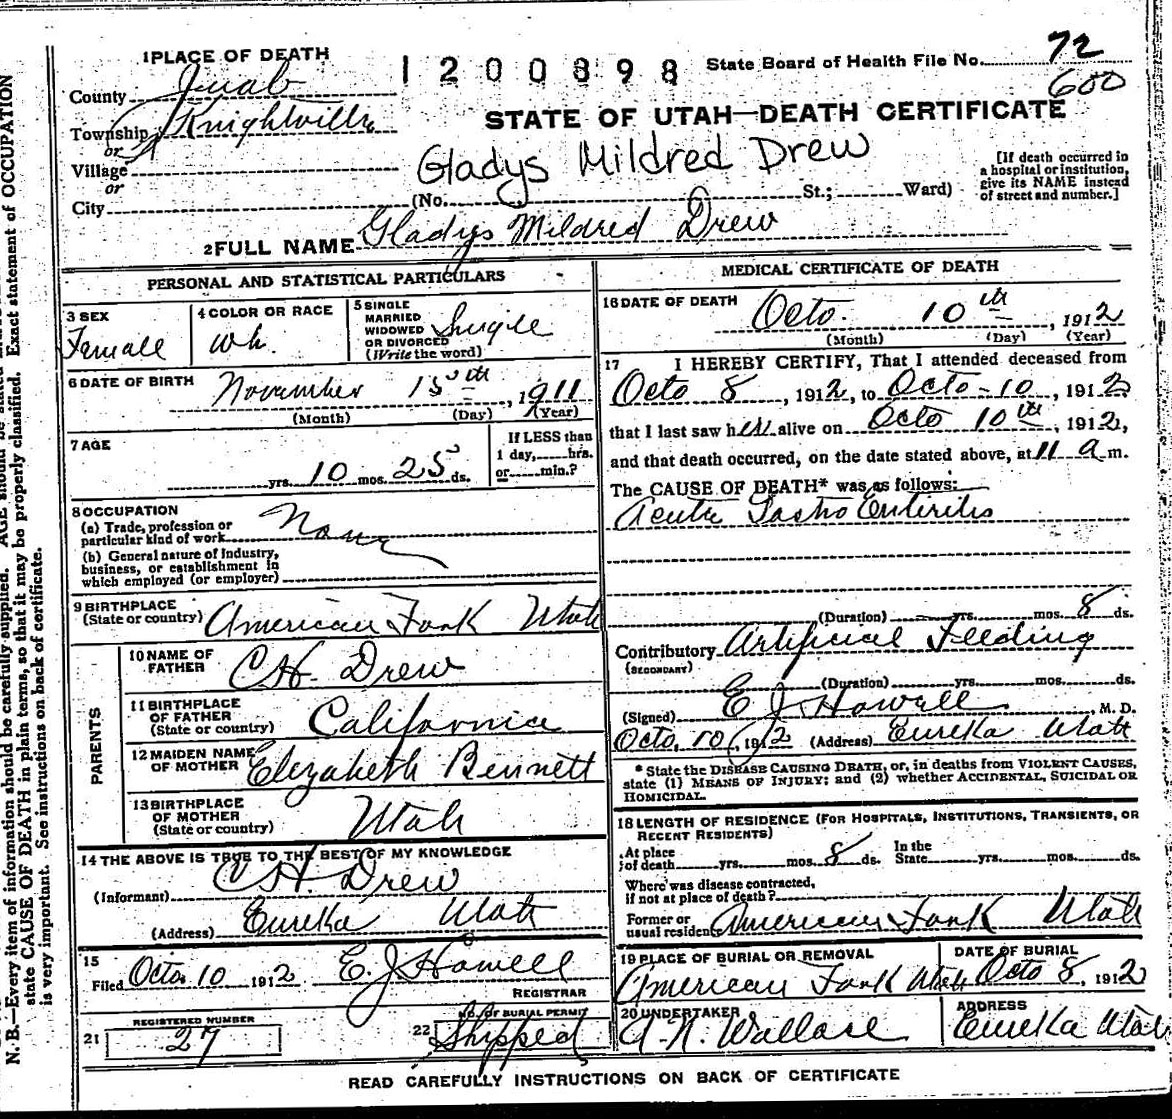 1 PLACE OF DEATH
1200898
State Board of Health File No. 72
600
County Juab
STATE OF UTAH—DEATH CERTIFICATE
Township Knightville
or
Village
or
Gladys Mildred Drew
[If death occurred in a hospital or institution, give its NAME instead of street and number.]
City (No. St.; Ward)
2 FULL NAME Gladys Mildred Drew
PERSONAL AND STATISTICAL PARTICULARS
3 SEX
Female
4 COLOR OR RACE
Wh.
5 SINGLE
MARRIED
WIDOWED
OR DIVORCED
(Write the word)
Single
6 DATE OF BIRTH
November 15th, 1911
(Month) (Day) (Year)
7 AGE
yrs. 10 mos. 25 ds.
If LESS than
1 day, hrs.
or min.?
8 OCCUPATION
(a) Trade, profession or
particular kind of work
(b) General nature of Industry,
business, or establishment in
which employed (or employer)
9 BIRTHPLACE
(State or country) American Fork Utah
PARENTS
10 NAME OF
FATHER C H. Drew
11 BIRTHPLACE
OF FATHER
(State or country) California
12 MAIDEN NAME
OF MOTHER Elizabeth Bennett
13 BIRTHPLACE
OF MOTHER
(State or country) Utah
14 THE ABOVE IS TRUE TO THE BEST OF MY KNOWLEDGE
(Informant) C H. Drew
(Address) Eureka Utah
15
Filed Octo. 10 1912 E. J. Howell
REGISTRAR
21 REGISTERED NUMBER
27
22 NO. OF BURIAL PERMIT
Shipped
MEDICAL CERTIFICATE OF DEATH
16 DATE OF DEATH
Octo. 10th, 1912
(Month) (Day) (Year)
17 I HEREBY CERTIFY, That I attended deceased from
Octo 8, 1912, to Octo-10, 1912
that I last saw her alive on Octo 10th, 1912,
and that death occurred, on the date stated above, at 11 a m.
The CAUSE OF DEATH* was as follows:
Acute Gastro Enteritis
(Duration) yrs. mos. 8 ds.
Contributory Artificial Feeding
(SECONDARY)
(Duration) yrs. mos. ds.
(Signed) E J Howell, M. D.
Octo, 10, 1912 (Address) Eureka Utah
* State the DISEASE CAUSING DEATH, or, in deaths from VIOLENT CAUSES,
state (1) MEANS OF INJURY; and (2) whether ACCIDENTAL, SUICIDAL OR
HOMICIDAL.
18 LENGTH OF RESIDENCE (FOR HOSPITALS, INSTITUTIONS, TRANSIENTS, OR
RECENT RESIDENTS)
At place
of death yrs. mos. 8 ds.
In the
State yrs. mos. ds.
Where was disease contracted,
if not at place of death?
Former or
usual residence American Fork Utah
19 PLACE OF BURIAL OR REMOVAL
American Fork Utah
DATE OF BURIAL
Octo 8, 1912
20 UNDERTAKER
A. N. Wallace
ADDRESS
Eureka Utah
READ CAREFULLY INSTRUCTIONS ON BACK OF CERTIFICATE
N. B.—Every item of information should be carefully supplied. AGE should be
state CAUSE OF DEATH in plain terms, so that it may be properly classified. Exact statement of OCCUPATION
is very important. See instructions on back of certificate.